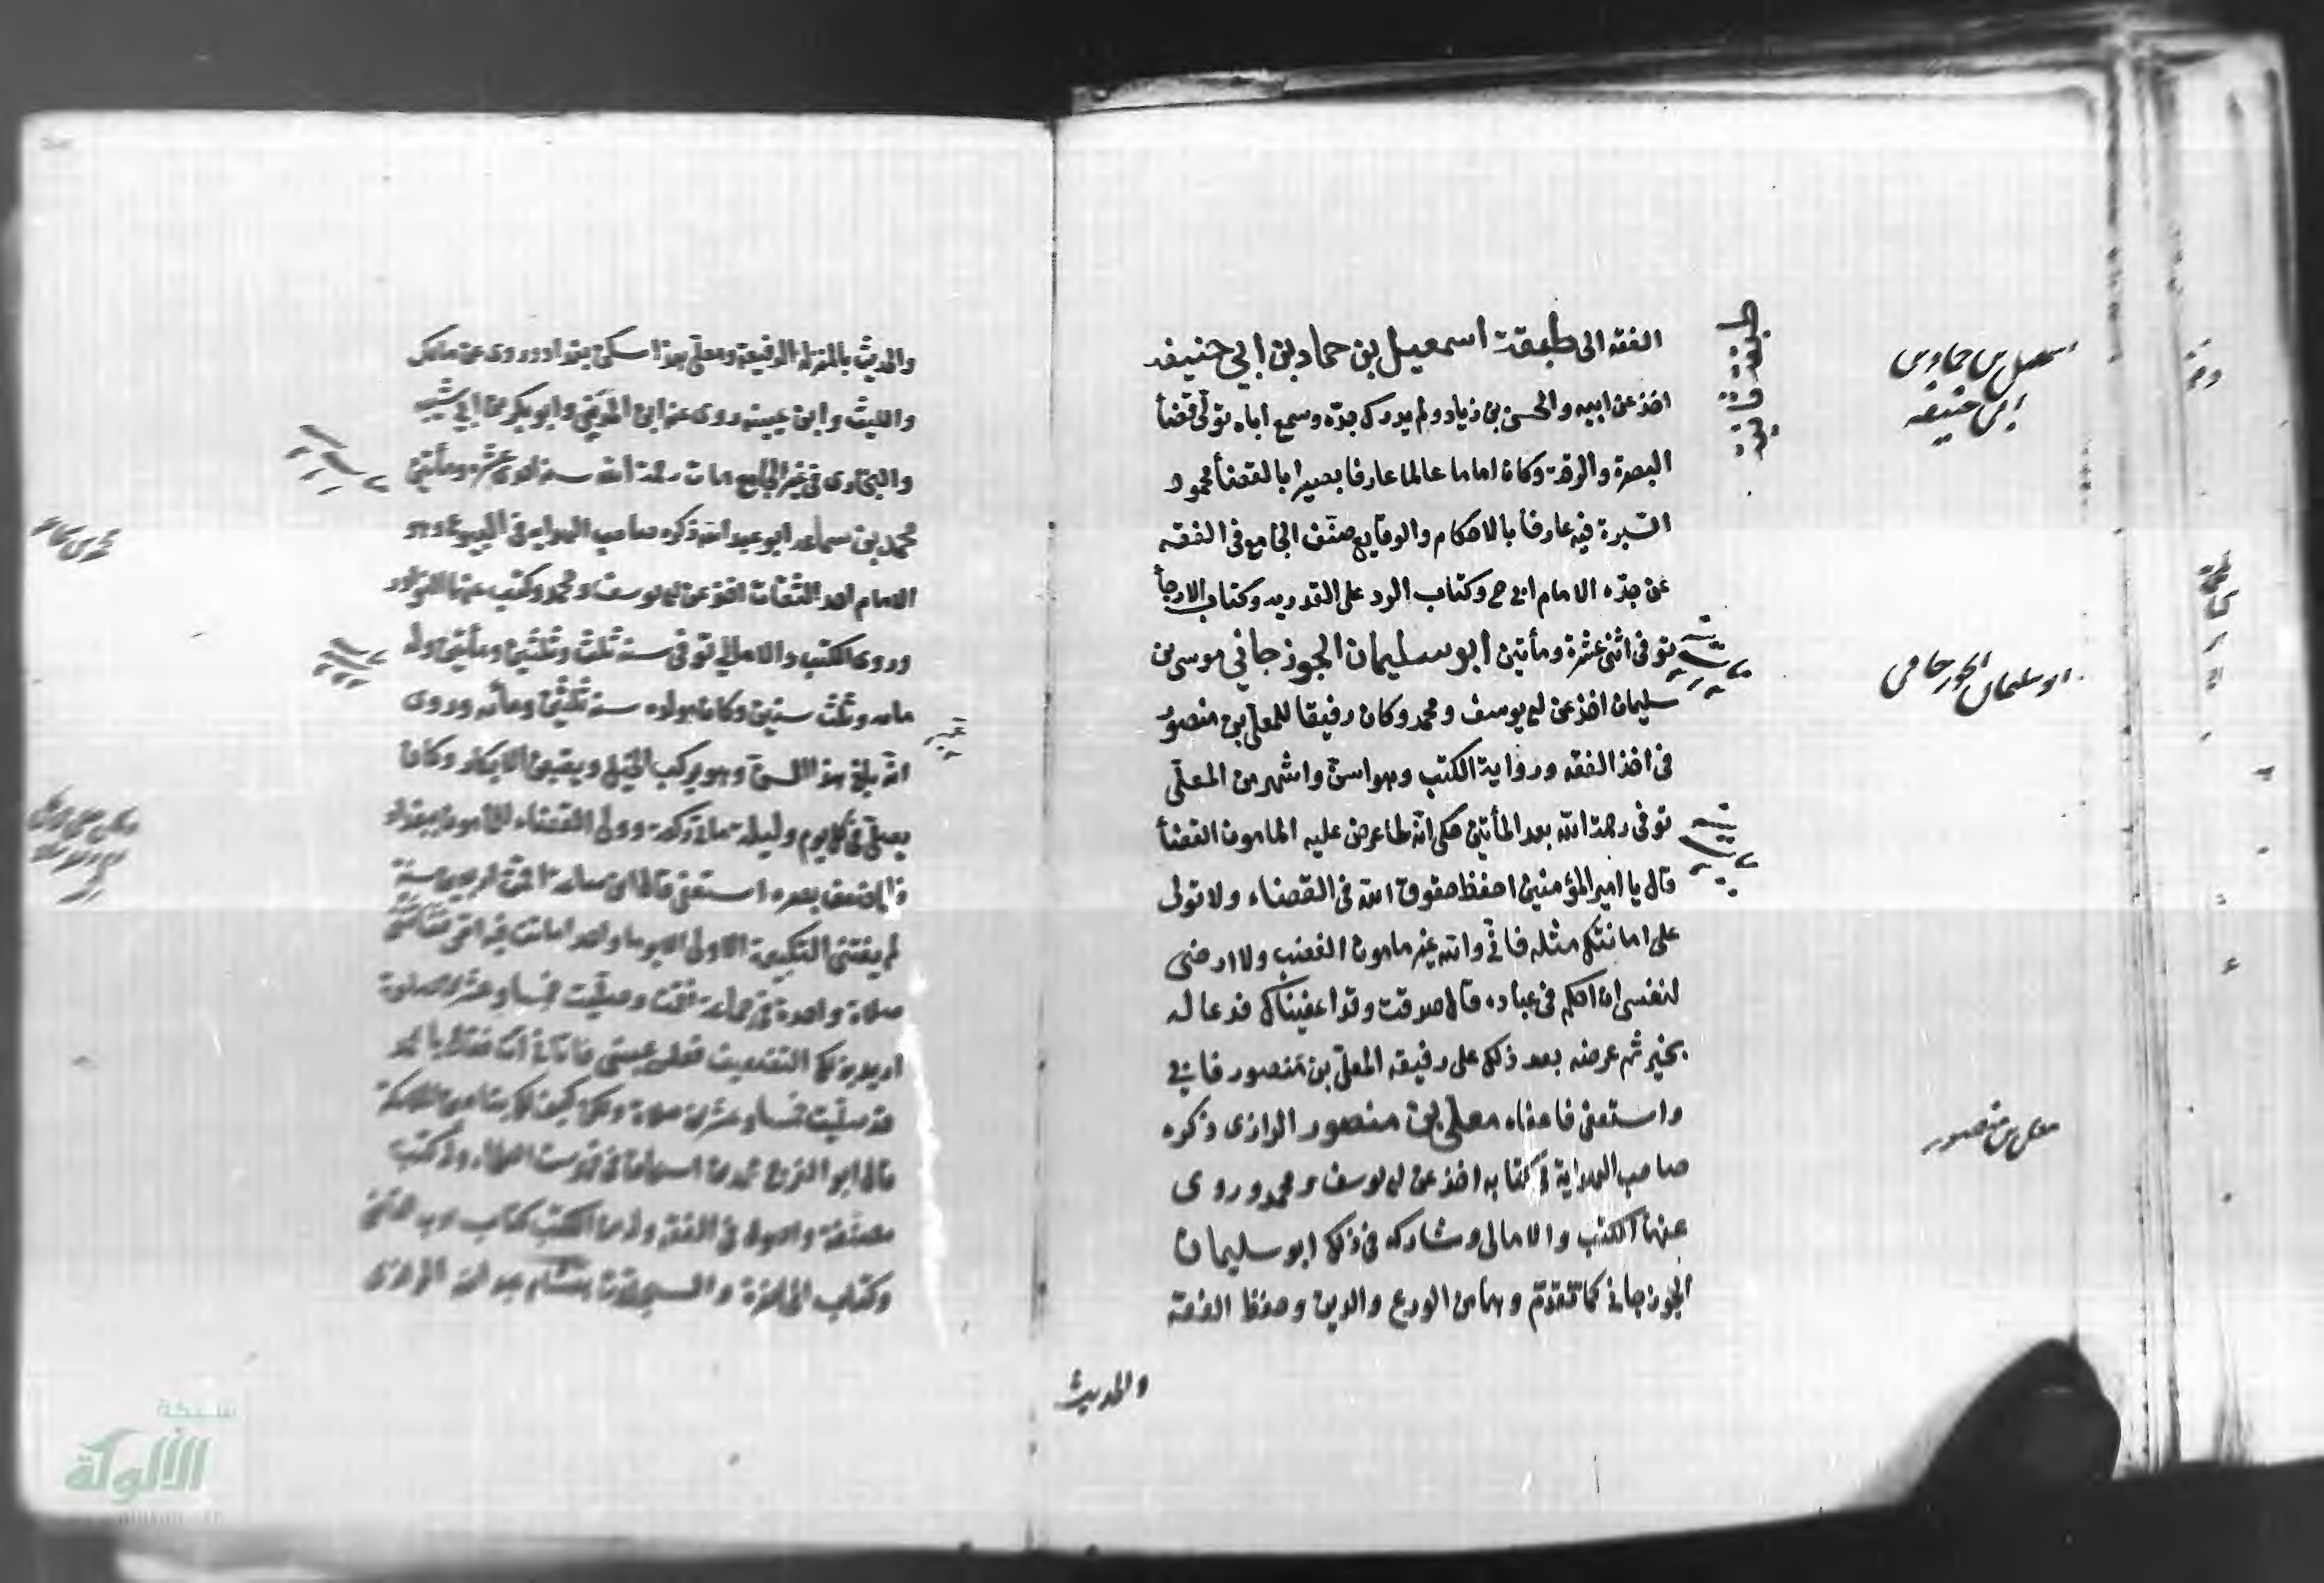 الفقه الى طبقة اسمعيل بن حماد بن ابي حنيفه
اخذ عن ابيه والحسن بن زياد ولم يدرك جده وسمع اباه تولى قضأ
البصرة والرقة وكان اماما عالما عارفا بصيرا بالقضأ محمود
السيرة فيه عارفا بالاحكام والوقايع صنف الجامع في الفقه
عن جده الامام ابي ح وكتاب الرد على القدريه وكتاب الارجأ
توفى اثنى عشرة ومأتين ابو سليمان الجوزجاني موسى بن
سليمان اخذ عن ابي يوسف ومحمد وكان رفيقا للمعلى بن منصور
في اخذ الفقه ورواية الكتب وهو اسن واشهر من المعلى
توفى رحمة الله بعد المأتين حكى انه لما عرض عليه المامون القضأ
قال يا امير المؤمنين احفظ حقوق الله في القضاء ولا تولى
على امانتك مثله فاني والله غير مامون الغضب ولا ارضى
لنفسى ان احكم في عباده قال صدقت وقد اعفيناك فدعا له
بخير ثم عرضه بعد ذلك على رفيقه المعلى بن منصور فابى
واستعفى فاعفاه معلى بن منصور الرازى ذكره
صاحب الهداية في كتابه اخذ عن ابى يوسف ومحمد وروى
عنهما الكتب والامالى وشاركه في ذلك ابو سليمان
الجوزجاني كما تقدم وهما من الورع والدين وحفظ الفقه
والحديث
طبقة ثانية
اسمعيل بن حماد بن
ابي حنيفه
ابو سليمان الجوزجاني
معلى بن منصور
والحديث بالمنزلة الرفيعة ومعلى هذا سكن بغداد وروى عن مالك
والليث وابن عيينه روى عنه ابن المديني وابو بكر بن ابي شيبه
والبخارى في غير الجامع مات رحمة الله سنة احدى عشره ومأتين
محمد بن سماعه ابو عبد الله ذكره صاحب الهدايه في البيوع وهو
الامام احد الثقات اخذ عن ابي يوسف ومحمد وكتب عنهما النوادر
وروى الكتب والامالي توفى سنة ثلث وثلثين ومأتين وله
مايه وثلث سنين وكان مولده سنة ثلثين ومأيه وروى
انه بلغ هذا السن وهو يركب الخيل ويفتض الابكار وكان
يصلى في كل يوم وليلة مأتي ركعة وولى القضاء للمأمون ببغداد
فلما ضعف بصره استعفى قال ابن سماعة اقمت اربعين سنة
لم يفتنى التكبيرة الاولى الا يوما واحدا ماتت فيه امى ففاتتنى
صلاة واحدة في جماعة فقمت وصليت خمسا وعشرين صلوة
اريد بذلك التضعيف فغلبني عيني فاتاني آت فقال يا محمد
قد صليت خمسا وعشرين صلاة ولكن كيف لك بتأمين الملائكة
قال ابو الفرج محمد بن اسحاق في فهرست العلماء وله كتب
مصنفة واصول في الفقه وله من الكتب كتاب ادب القاضي
وكتاب المحاضر والسجلات هشام بن عبد الله الرازى
شبكة
الألوكة